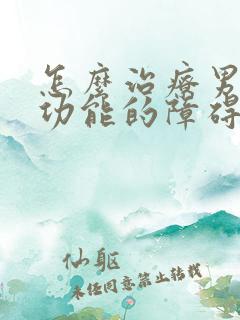 怎麼治療男
功能的障碍
仙躯
未经同意禁止转载